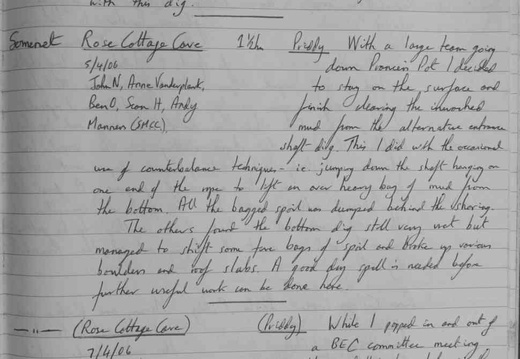 with this dig.
Somerset Rose Cottage Cave 1½hr Priddy. With a large team going
5/4/06 down Prancers Pot I decided
John N, Anne Vanderplank, to stay on the surface and
Ben O, Sean H, Andy finish clearing the inwashed
Manren (SMCC) mud from the alternative entrance
shaft dig. This I did with the occasional
use of counterbalance techniques - ie. jumping down the shaft hanging on
one end of the rope to lift an over heavy bag of mud from
the bottom. All the bagged spoil was dumped behind the shoring.
The others found the bottom dig still very wet but
managed to shift some five bags of spoil and broke up various
boulders and roof slabs. A good dry spell is needed before
further useful work can be done here.
—"— (Rose Cottage Cave) (Priddy) While I popped in and out of
7/4/06 a BEC committee meeting